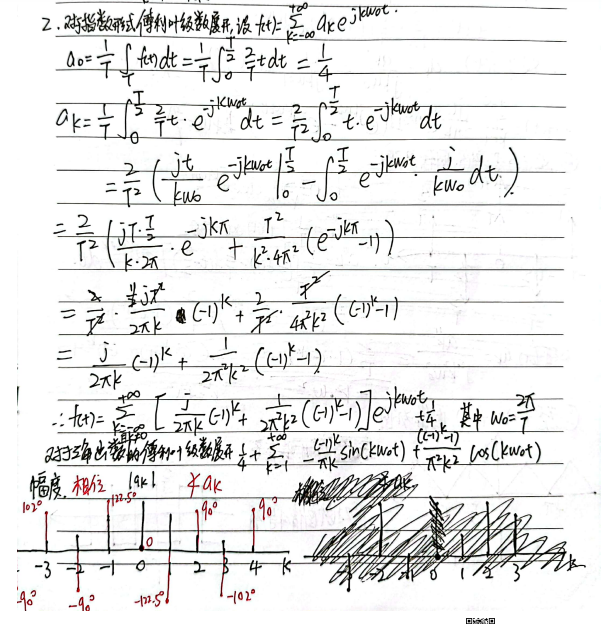 2. 对指数形式傅利叶级数展开, 设 f(t)=∑_{k=-∞}^{+∞} a_k e^{jkw₀t}.
a₀=1/T ∫_T f(t)dt = 1/T ∫_0^{T/2} 2/T t dt = 1/4
a_k = 1/T ∫_0^{T/2} 2/T t·e^{-jkw₀t} dt = 2/T² ∫_0^{T/2} t·e^{-jkw₀t} dt
= 2/T² ( jt/kw₀ e^{-jkw₀t} |_0^{T/2} - ∫_0^{T/2} e^{-jkw₀t}· j/kw₀ dt )
= 2/T² ( jT·T/2 / k·2π · e^{-jkπ} + T²/k²·4π² (e^{-jkπ}-1) )
= 2/T² · ½jT²/2πk · (-1)^k + 2/T² · T²/4π²k² ((-1)^k-1)
= j/2πk (-1)^k + 1/2π²k² ((-1)^k-1)
∴ f(t)=∑_{k=-∞}^{+∞} [ j/2πk (-1)^k + 1/2π²k² ((-1)^k-1) ] e^{jkw₀t} + 1/4 其中 w₀=2π/T
k≠0
对于三角函数的傅利叶级数展开 1/4 + ∑_{k=1}^{+∞} -(-1)^k/πk sin(kw₀t) + ((-1)^k-1)/π²k² cos(kw₀t)
幅度 相位 |a_k| ∡a_k
102° 122.5° 90° 90°
0
-3 -2 -1 0 2 3 4 k
-90° -90° -122.5° -102°
0 1 2 3